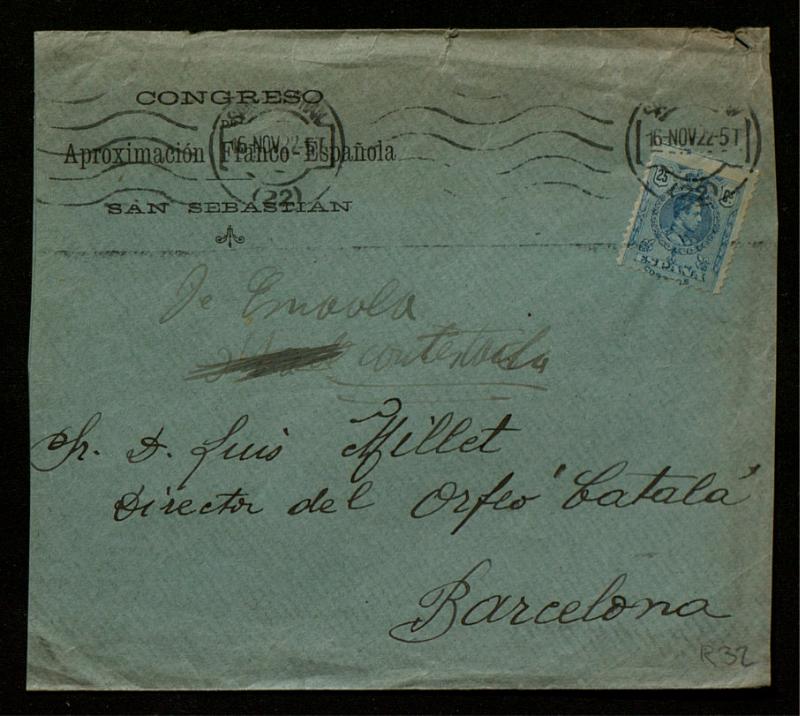 CONGRESO
DE
Aproximación Franco-Española
SAN SEBASTIÁN
16-NOV.22-5T
(22)
16-NOV.22-5T
25 Cs
ESPAÑA
CORREOS
De
contestada
Sr. D. Luis Millet
Director del Orfeó Catalá
Barcelona
R32